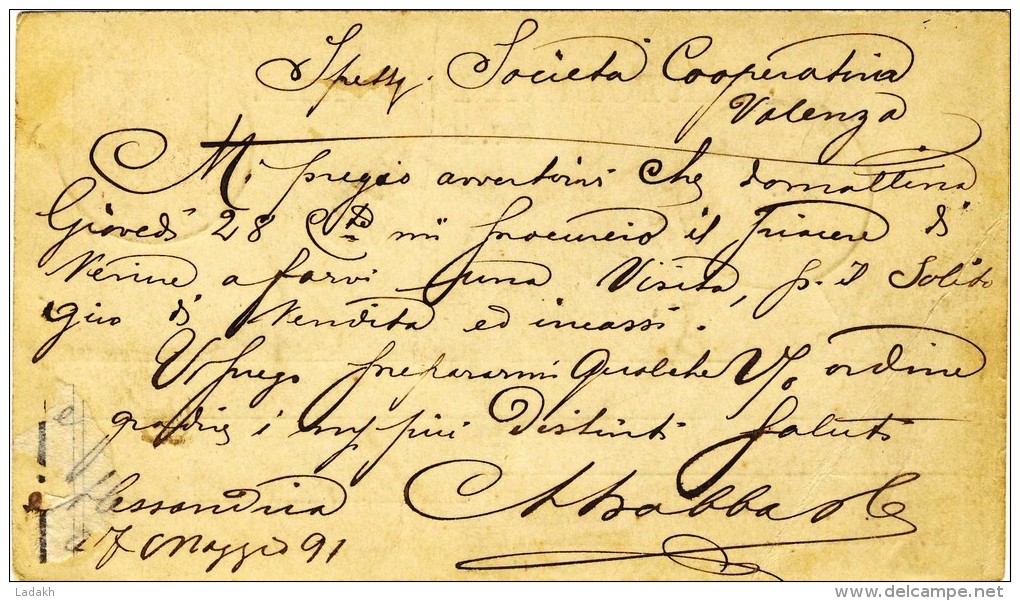 Spett. Società Cooperativa
Valenza
Mi pregio avvertirvi che domattina
Giovedì 28 Cte mi procurerò il piacere di
Venire a farvi una Visita, p. il Solito
giro di Vendita ed incassi.
Vi prego prepararmi qualche Vo ordine
gradite i più Distinti Saluti
Alessandria
27 Maggio 91
Ladakh
delcampe.net